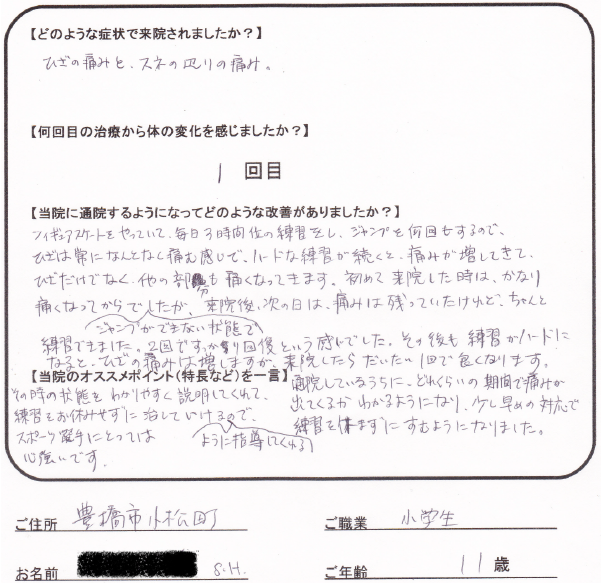 【どのような症状で来院されましたか？】
ひざの痛みと、スネの辺りの痛み。
【何回目の治療から体の変化を感じましたか？】
1 回目
【当院に通院するようになってどのような改善がありましたか？】
フィギュアスケートをやっていて、毎日3時間位の練習をし、ジャンプを何回もするので、
ひざは常になんとなく痛む感じで、ハードな練習が続くと、痛みが増してきて、
ひざだけでなく、他の部分も痛くなってきます。初めて来院した時は、かなり
痛くなってからでしたが、来院後、次の日は、痛みは残っていたけれど、ちゃんと
ジャンプができない状態で
練習できました。2回ですっかり回復という感じでした。その後も練習がハードに
なると、ひざの痛みは増しますが、来院したらだいたい1回で良くなります。
通院しているうちに、どれくらいの期間で痛みが
出てくるかわかるようになり、少し早めの対応で
練習を休まずにすむようになりました。
【当院のオススメポイント(特長など)を一言】
その時の状態をわかりやすく説明してくれて、
練習をお休みせずに治していけるので、
ように指導してくれる
スポーツ選手にとっては
心強いです。
ご住所 豊橋市小松町
ご職業 小学生
お名前 S.H.
ご年齢 11歳